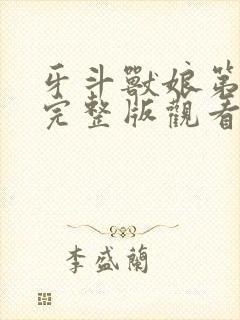 牙斗獸娘第
完整版觀看
李盛蘭